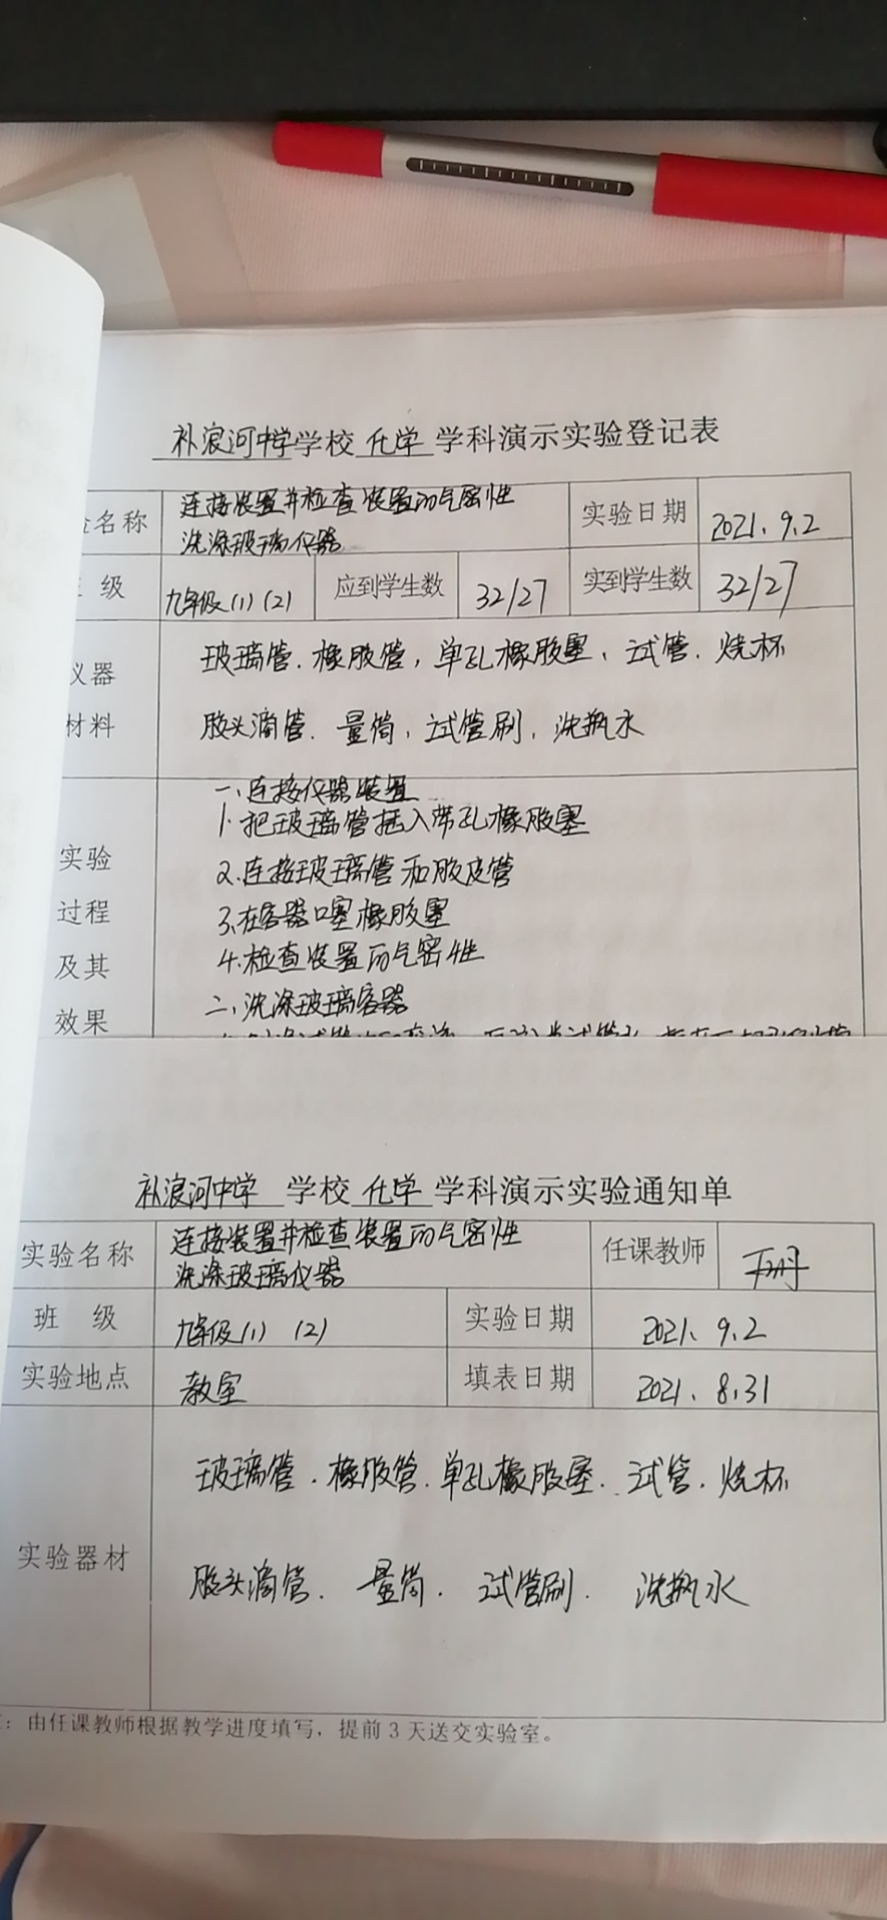 补浪河中学学校 化学 学科演示实验登记表
名称 连接装置并检查装置的气密性 实验日期 2021.9.2
洗涤玻璃仪器
级 九年级(1)(2) 应到学生数 32/27 实到学生数 32/27
仪器 玻璃管.橡胶管,单孔橡胶塞、试管.烧杯
材料 胶头滴管.量筒,试管刷,洗瓶水
一、连接仪器装置
1.把玻璃管插入带孔橡胶塞
实验 2.连接玻璃管和胶皮管
过程 3.在容器口塞橡胶塞
及其 4.检查装置的气密性
效果 二、洗涤玻璃容器
补浪河中学 学校 化学 学科演示实验通知单
实验名称 连接装置并检查装置的气密性 任课教师
洗涤玻璃仪器
班 级 九年级(1) (2) 实验日期 2021、9.2
实验地点 教室 填表日期 2021、8.31
玻璃管.橡胶管.单孔橡胶塞.试管.烧杯
实验器材
胶头滴管. 量筒. 试管刷. 洗瓶水
:由任课教师根据教学进度填写,提前3天送交实验室。